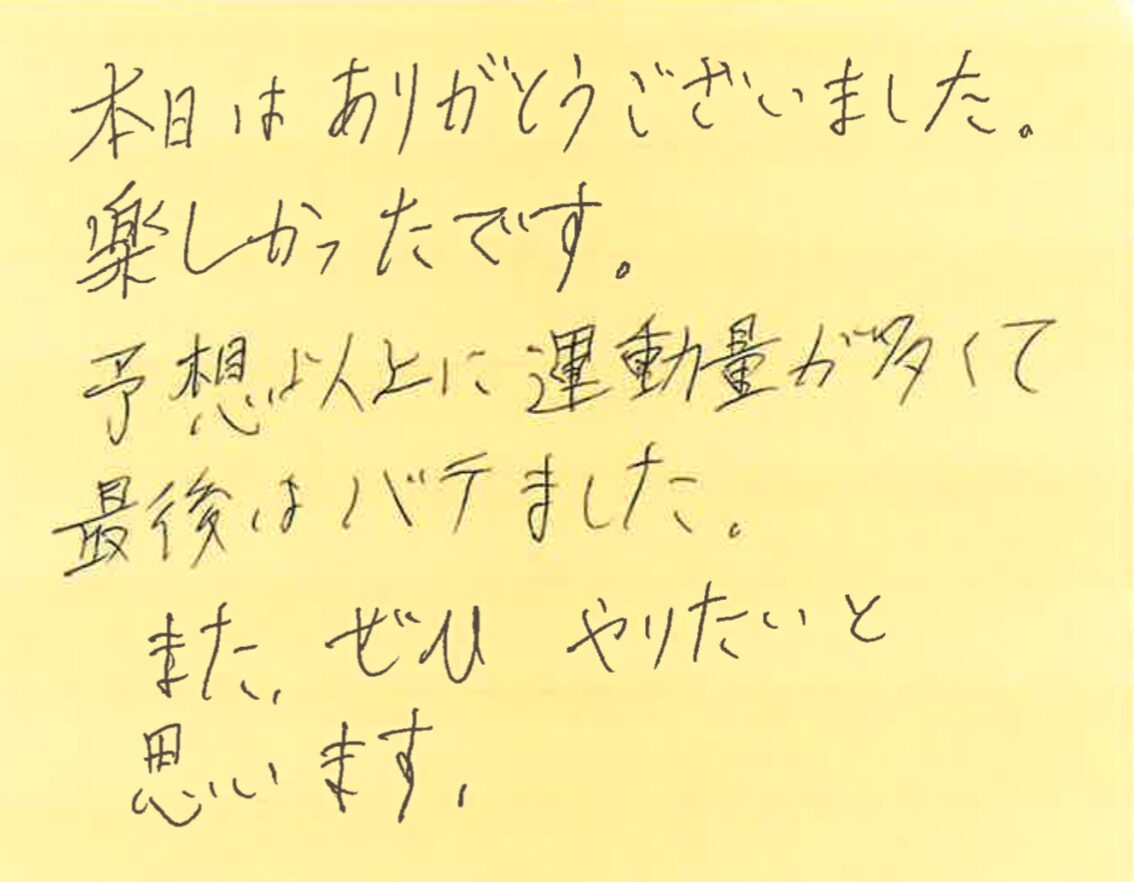 本日はありがとうございました。
楽しかったです。
予想以上に運動量が多くて
最後はバテました。
また、ぜひ やりたいと
思います、